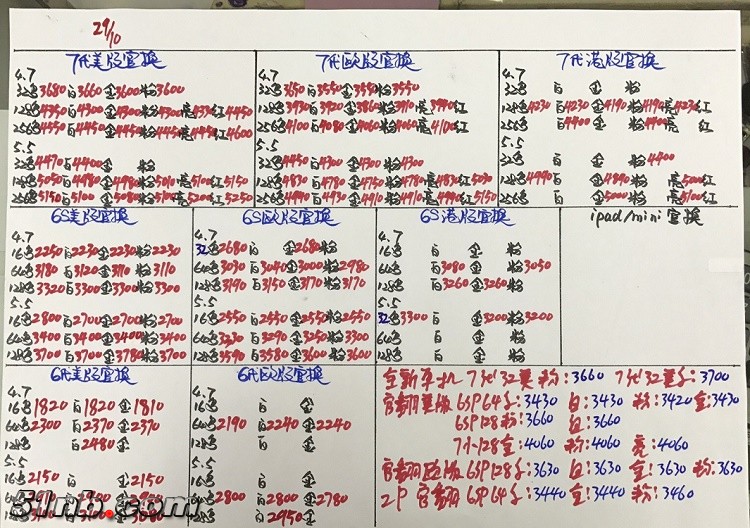 29/10
7代美版官换
4.7
32色3680白3660金3600粉3600
128色4350白4300金4300粉4300亮4350红4450
256色4550白4450金4450粉4450亮4450红4600
5.5
32色4470白4400金 粉
128色5050白4980金4980粉5010亮5100红5150
256色5150白5100金5080粉5100亮5200红5250
7代欧版官换
4.7
32色3650白3550金3550粉3550
128色3930白3920金3860粉3910亮3940红
256色4100白4080金4060粉4060亮4100红
5.5
32色4450白4300金4300粉4300
128色4830白4780金4750粉4780亮4830红5030
256色4940白4930金4910粉4910亮4990红5150
7代港版官换
4.7
32色 白 金 粉
128色4230白4230金4190粉4190亮4230红
256色 白4400金 粉4400亮 红
5.5
32色 白 金 粉4400
128色4990白 金4890粉 亮5000红
256色 白 金5000粉 亮5100红
6S美版官换
4.7
16色2250白2230金2230粉2230
64色3180白3120金3110粉3110
128色3320白3300金3300粉3300
5.5
16色2800白2700金2700粉2700
64色3400白3400金3400粉3400
128色3700白3700金3780粉3700
6S欧版官换
4.7
32色2680白 金2680粉
64色3030白3040金3000粉2980
128色3190白3150金3170粉3170
5.5
16色2550白2550金2550粉2550
64色3230白3290金3250粉3300
128色3590白3580金3600粉3600
6S港版官换
4.7
16色 白 金 粉
64色 白3080金 粉3050
128色 白3260金3260粉
5.5
32色3300白 金3200粉3200
64色 白 金 粉
128色 白 金 粉
ipad/mini官换
6代美版官换
4.7
16色1820白1820金1810
64色2300白2370金2370
128色 白2480金
5.5
16色2150 金2150
6代欧版官换
4.7
16色 白 金
64色2190白2240金2240
128色 白 金
5.5
16色 白 金
64色2800白2800金2780
128色 白2950金
全新单机 7代32美 粉:3660 7代32美金:3700
官翻美版 6SP64金:3430 白:3430 粉:3420 金:3430
6SP128粉:3660 白:3660
7小128金:4060 粉:4060 亮:4060
官翻欧版 6SP128金:3630 白:3630 金:3630 粉:3630
2P 官翻 6SP64金:3440 金:3440 粉:3460
51nb.com